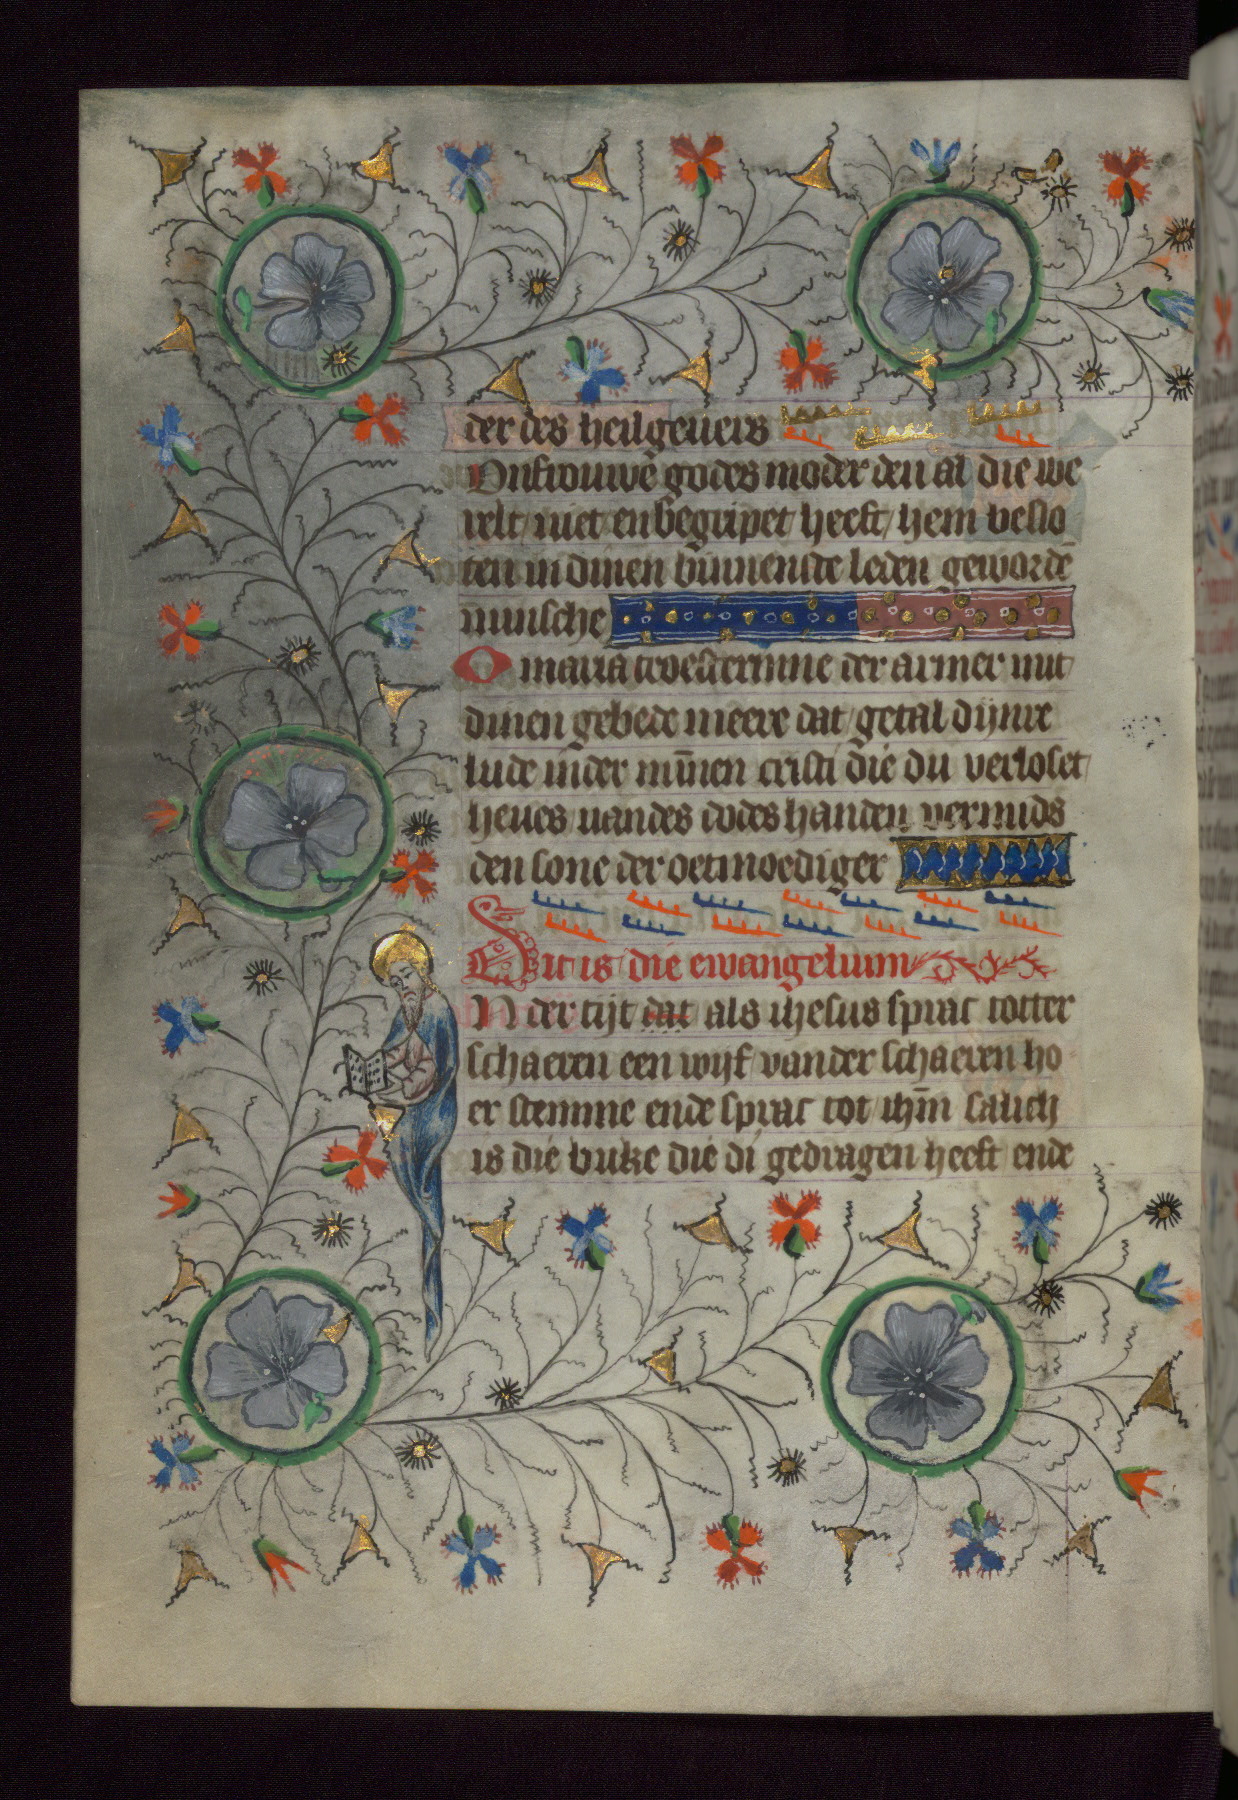 der des heilgeuers
Onsvrouwe godes moder den al die we
relt niet en begripet heeft hem beslo
ten in dinen binnenste leden gewordē
minsche
O maria troesterinne der armer mit
dinen gebede meere dat getal dijnre
lude inder mīnen cristi die du verloset
heues vandes dodes handen vermids
den sone der oetmoediger
Dit is die ewangelium
In der tijt dat als ihesus sprac totter
schaeren een wijf vander schaeren ho
er stemme ende sprac tot ihm̄ salich
is die buke die di gedragen heeft ende